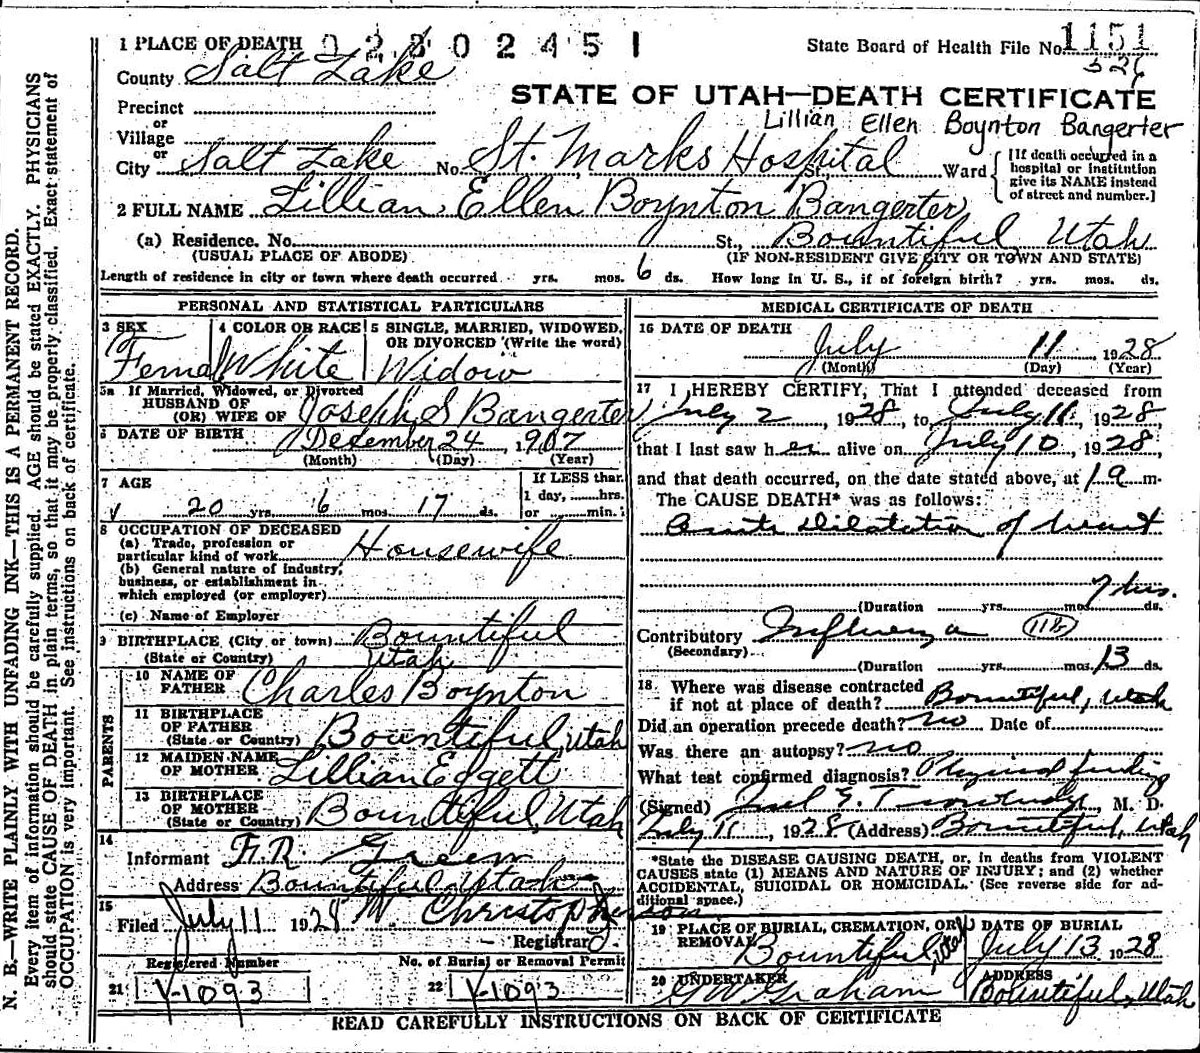 1 PLACE OF DEATH 0 2 2 0 2 4 5 1 State Board of Health File No. 1151
County Salt Lake 526
STATE OF UTAH—DEATH CERTIFICATE
Precinct
or Lillian Ellen Boynton Bangerter
Village
or
City Salt Lake No. St. Marks Hospital St., Ward [If death occurred in a hospital or institution give its NAME instead of street and number.]
2 FULL NAME Lillian Ellen Boynton Bangerter
(a) Residence. No. St., Bountiful, Utah
(USUAL PLACE OF ABODE) (IF NON-RESIDENT GIVE CITY OR TOWN AND STATE)
Length of residence in city or town where death occurred yrs. mos. 6 ds. How long in U. S., if of foreign birth? yrs. mos. ds.
PERSONAL AND STATISTICAL PARTICULARS
3 SEX 4 COLOR OR RACE 5 SINGLE, MARRIED, WIDOWED, OR DIVORCED (Write the word)
Female White Widow
5a If Married, Widowed, or Divorced
HUSBAND OF
(OR) WIFE OF Joseph S Bangerter
6 DATE OF BIRTH December 24, 1907
(Month) (Day) (Year)
7 AGE If LESS than
1 day, hrs.
20 yrs. 6 mos. 17 ds. or min.
8 OCCUPATION OF DECEASED
(a) Trade, profession or
particular kind of work Housewife
(b) General nature of industry,
business, or establishment in
which employed (or employer)
(c) Name of Employer
9 BIRTHPLACE (City or town) Bountiful
(State or Country) Utah
PARENTS
10 NAME OF
FATHER Charles Boynton
11 BIRTHPLACE
OF FATHER
(State or Country) Bountiful, Utah
12 MAIDEN NAME
OF MOTHER Lillian Edgett
13 BIRTHPLACE
OF MOTHER
(State or Country) Bountiful, Utah
14
Informant F. R. Green
Address Bountiful Utah
15
Filed July 11 1928 M Christopherson
Registrar
Registered Number No. of Burial or Removal Permit
21 Y-1093 22 Y-1093
MEDICAL CERTIFICATE OF DEATH
16 DATE OF DEATH
July 11 1928
(Month) (Day) (Year)
17 I HEREBY CERTIFY, That I attended deceased from
July 2, 1928, to July 11, 1928
that I last saw her alive on July 10, 1928,
and that death occurred, on the date stated above, at 1 a m.
The CAUSE DEATH* was as follows:
Acute Dilatation of heart
7 hrs.
(Duration yrs. mos. ds.
Contributory Influenza 11b
(Secondary)
(Duration yrs. mos. 13 ds.
18. Where was disease contracted
if not at place of death? Bountiful, Utah
Did an operation precede death? no Date of
Was there an autopsy? no
What test confirmed diagnosis? Physical finding
(Signed) M. D.
July 11, 1928 (Address) Bountiful, Utah
*State the DISEASE CAUSING DEATH, or, in deaths from VIOLENT
CAUSES state (1) MEANS AND NATURE OF INJURY; and (2) whether
ACCIDENTAL, SUICIDAL OR HOMICIDAL. (See reverse side for ad-
ditional space.)
19 PLACE OF BURIAL, CREMATION, OR REMOVAL DATE OF BURIAL
Bountiful, Utah July 13 1928
20 UNDERTAKER ADDRESS
G W Graham Bountiful, Utah
READ CAREFULLY INSTRUCTIONS ON BACK OF CERTIFICATE
N. B.—WRITE PLAINLY WITH UNFADING INK—THIS IS A PERMANENT RECORD.
Every item of information should be carefully supplied. AGE should be stated EXACTLY. PHYSICIANS
should state CAUSE OF DEATH in plain terms, so that it may be properly classified. Exact statement of
OCCUPATION is very important. See instructions on back of certificate.